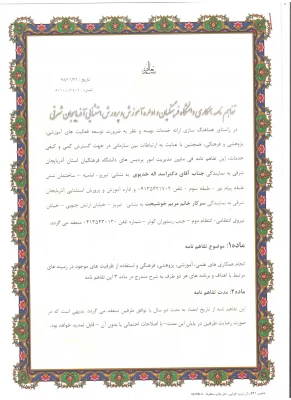 تفاهم نامه همکاری دانشگاه فرهنگیان و اداره آموزش و پرورش استثنایی آذربایجان شرقی
در راستای هماهنگ سازی ارائه خدمات بهینه و نظر به ضرورت توسعه فعالیت های آموزشی،
پژوهشی و فرهنگی، همچنین با عنایت به ارتباطات بین سازمانی در جهت گسترش کمی و کیفی
خدمات، این تفاهم نامه فی مابین مدیریت امور پردیس های دانشگاه فرهنگیان استان آذربایجان
شرقی به نمایندگی جناب آقای دکتر اسد اله خدیوی به نشانی: تبریز- امامیه - ساختمان شش
طبقه پیام نور - طبقه سوم - تلفن و اداره آموزش و پرورش استثنایی آذربایجان
شرقی به نمایندگی سرکار خانم مریم خوشبخت به نشانی: تبریز - خیابان ارتش جنوبی - خیابان
نیروی انتظامی - انتظام دوم - جنب رستوران کوثر - تلفن منعقد می گردد:
ماده۱: موضوع تفاهم نامه
انجام همکاری های علمی، آموزشی، پژوهشی، فرهنگی و استفاده از ظرفیت های موجود در زمینه های
مرتبط با اهداف و برنامه های هر دو طرف به شرح مندرج در ماده ۳ این تفاهم نامه
ماده۲: مدت تفاهم نامه
این تفاهم نامه از تاریخ امضاء به مدت دو سال با توافق طرفین منعقد می گردد. بدیهی است که در
صورت رضایت طرفین در پایان این مدت- با اصلاحات احتمالی یا بدون آن - قابل تمدید خواهد بود.